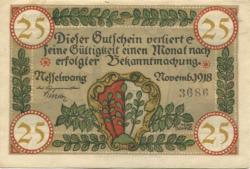 25 25
Dieser Gutschein verliert
seine Gültigkeit einen Monat nach
erfolgter Bekanntmachung.
Nesselwang Novemb. 1918
3686
25 25